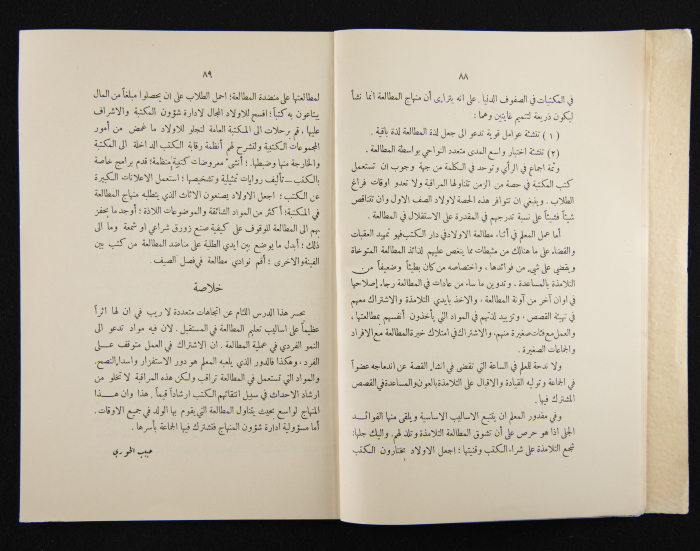 ٨٨
في المكتبات في الصفوف الدنيا. على انه يتراءى أن منهاج المطالعة انما نشأ
ليكون ذريعة لتتميم غايتين وهما:
(١) تنشئة عوامل قوية تدعو الى جعل لذة المطالعة لذة باقية.
(٢) تنشئة اختبار واسع المدى متعدد النواحي بواسطة المطالعة.
وثمة اجماع في الرأي وتوحد في الكلمة من جهة وجوب ان تستعمل
كتب المكتبة في حصة من الزمن تتناولها المراقبة ولا تعدو اوقات فراغ
الطلاب. وينبغي ان تتوافر هذه الحصة لاولاد الصف الاول وان تتناقص
شيئاً فشيئاً على نسبة تدرجهم في المقدرة على الاستقلال في المطالعة.
أما عمل المعلم في أثناء مطالعة الاولاد في دار الكتب فهو تمهيد العقبات
والقضاء على ما هنالك من مثبطات مما ينغص عليهم لذائذ المطالعة المتوخاة
ويقضي على شيء من فوائدها، واختصاصه من كان بطيئاً وضعيفاً من
التلامذة بالمساعدة. وتدوين ما ساء من عادات في المطالعة رجاء إصلاحها
في اوان آخر من آونة المطالعة، والاخذ بايدي التلامذة والاشتراك معهم
في تهيئة القصص، وتزييد لذتهم في المواد التي يأخذون أنفسهم بمطالعتها،
والعمل مع فئات صغيرة منهم، والاشتراك في امتلاك خبرة المطالعة مع الافراد
والجماعات الصغيرة.
ولا ندحة للمعلم في الساعة التي تقضى في انشاء القصة عن اندماجه عضواً
في الجماعة وتوليه القيادة والاقبال على التلامذة بالعون والمساعدة في القصص
المشترك فيها.
وفي مقدور المعلم ان يتتبع الاساليب الاساسية ويلقى منها الفوائد
الجلى اذا هو حرص على أن تشوق المطالعة التلامذة وتلذ لهم. واليك جلها:
شجع التلامذة على شراء الكتب وقنيتها؛ اجعل الاولاد يختارون الكتب
٨٩
لمطالعتها على منضدة المطالعة؛ احمل الطلاب على ان يحصلوا مبلغاً من المال
يبتاعون به كتباً؛ افسح للاولاد المجال لادارة شؤون المكتبة والاشراف
عليها، قم برحلات الى المكتبة العامة لتجلو للاولاد ما غمض من أمور
المجموعات الكتبية ولتشرح لهم أنظمة رقابة الكتب الداخلة الى المكتبة
والخارجة منها وضبطها. أنشئ معروضات كتبية منظمة؛ قدم برامج خاصة
بالكتب ــ تأليف روايات تمثيلية وتشخيصها؛ استعمل الاعلانات الكبيرة
عن الكتب؛ اجعل الاولاد يصنعون الاثاث الذي يتطلبه منهاج المطالعة
في المكتبة؛ أكثر من المواد الشائقة والموضوعات اللاذة؛ أوجد ما يحفز
بهم الى المطالعة للوقوف على كيفية صنع زورق شراعي او شمعة وما الى
ذلك؛ أبدل ما يوضع بين ايدي الطلبة على مناضد المطالعة من كتب بين
الفينة والاخرى؛ أقم نوادي مطالعة في فصل الصيف.
خلاصة
يحسر هذا الدرس اللثام عن اتجاهات متعددة لا ريب في ان لها اثراً
عظيماً على اساليب تعليم المطالعة في المستقبل. لان فيه مواد تدعو الى
النمو الفردي في عملية المطالعة. ان الاشتراك في العمل متوقف على
الفرد، وهكذا فالدور الذي يلعبه المعلم هو دور الاستفزاز واسداء النصح.
والمواد التي تستعمل في المطالعة تراقب ولكن هذه المراقبة لا تخلو من
ارشاد الاحداث في سبيل انتقائهم الكتب ارشاداً قيماً. هذا وان هذا
المنهاج لواسع بحيث يتناول المطالعة التي يقوم بها الولد في جميع الاوقات.
أما مسؤولية ادارة شؤون المنهاج فتشترك فيها الجماعة بأسرها.
حبيب الخوري